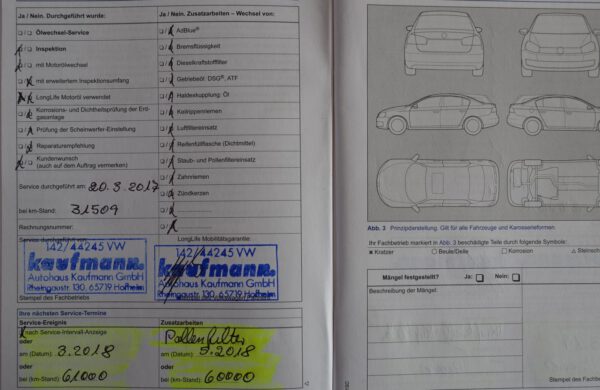 Ja / Nein. Durchgeführt wurde:
Ölwechsel-Service
Inspektion
mit Motorölwechsel
mit erweitertem Inspektionsumfang
LongLife Motoröl verwendet
Korrosions- und Dichtheitsprüfung der Erd-
gasanlage
Prüfung der Scheinwerfer-Einstellung
Reparaturempfehlung
Kundenwunsch
(auch auf dem Auftrag vermerken)
Service durchgeführt am: 20.3.2017
bei km-Stand: 31509
Rechnungsnummer:
Service durchgeführt von:
142/44245 VW
kaufmann.
Autohaus Kaufmann GmbH
Rheingaustr. 130, 65719 Hofheim
Stempel des Fachbetriebs
Ja / Nein. Zusatzarbeiten – Wechsel von:
AdBlue®
Bremsflüssigkeit
Dieselkraftstofffilter
Getriebeöl: DSG®, ATF
Haldexkupplung: Öl
Keilrippenriemen
Luftfiltereinsatz
Reifenfüllflasche (Dichtmittel)
Staub- und Pollenfiltereinsatz
Zahnriemen
Zündkerzen
LongLife Mobilitätsgarantie:
142/44245 VW
kaufmann.
Autohaus Kaufmann GmbH
Rheingaustr. 130, 65719 Hofheim
Ihre nächsten Service-Termine
Service-Ereignis
nach Service-Intervall-Anzeige
oder
am (Datum): 3.2018
oder
bei (km-Stand): 61000
Zusatzarbeiten
Pollenfilter
am (Datum): 3.2018
oder
bei (km-Stand): 60000
Abb. 3 Prinzipdarstellung. Gilt für alle Fahrzeuge und Karosserieformen.
Ihr Fachbetrieb markiert in Abb. 3 beschädigte Teile durch folgende Symbole:
Kratzer
Beule/Delle
Korrosion
Mängel festgestellt?
Ja:
Nein:
Beschreibung der Mängel:
Stempel des